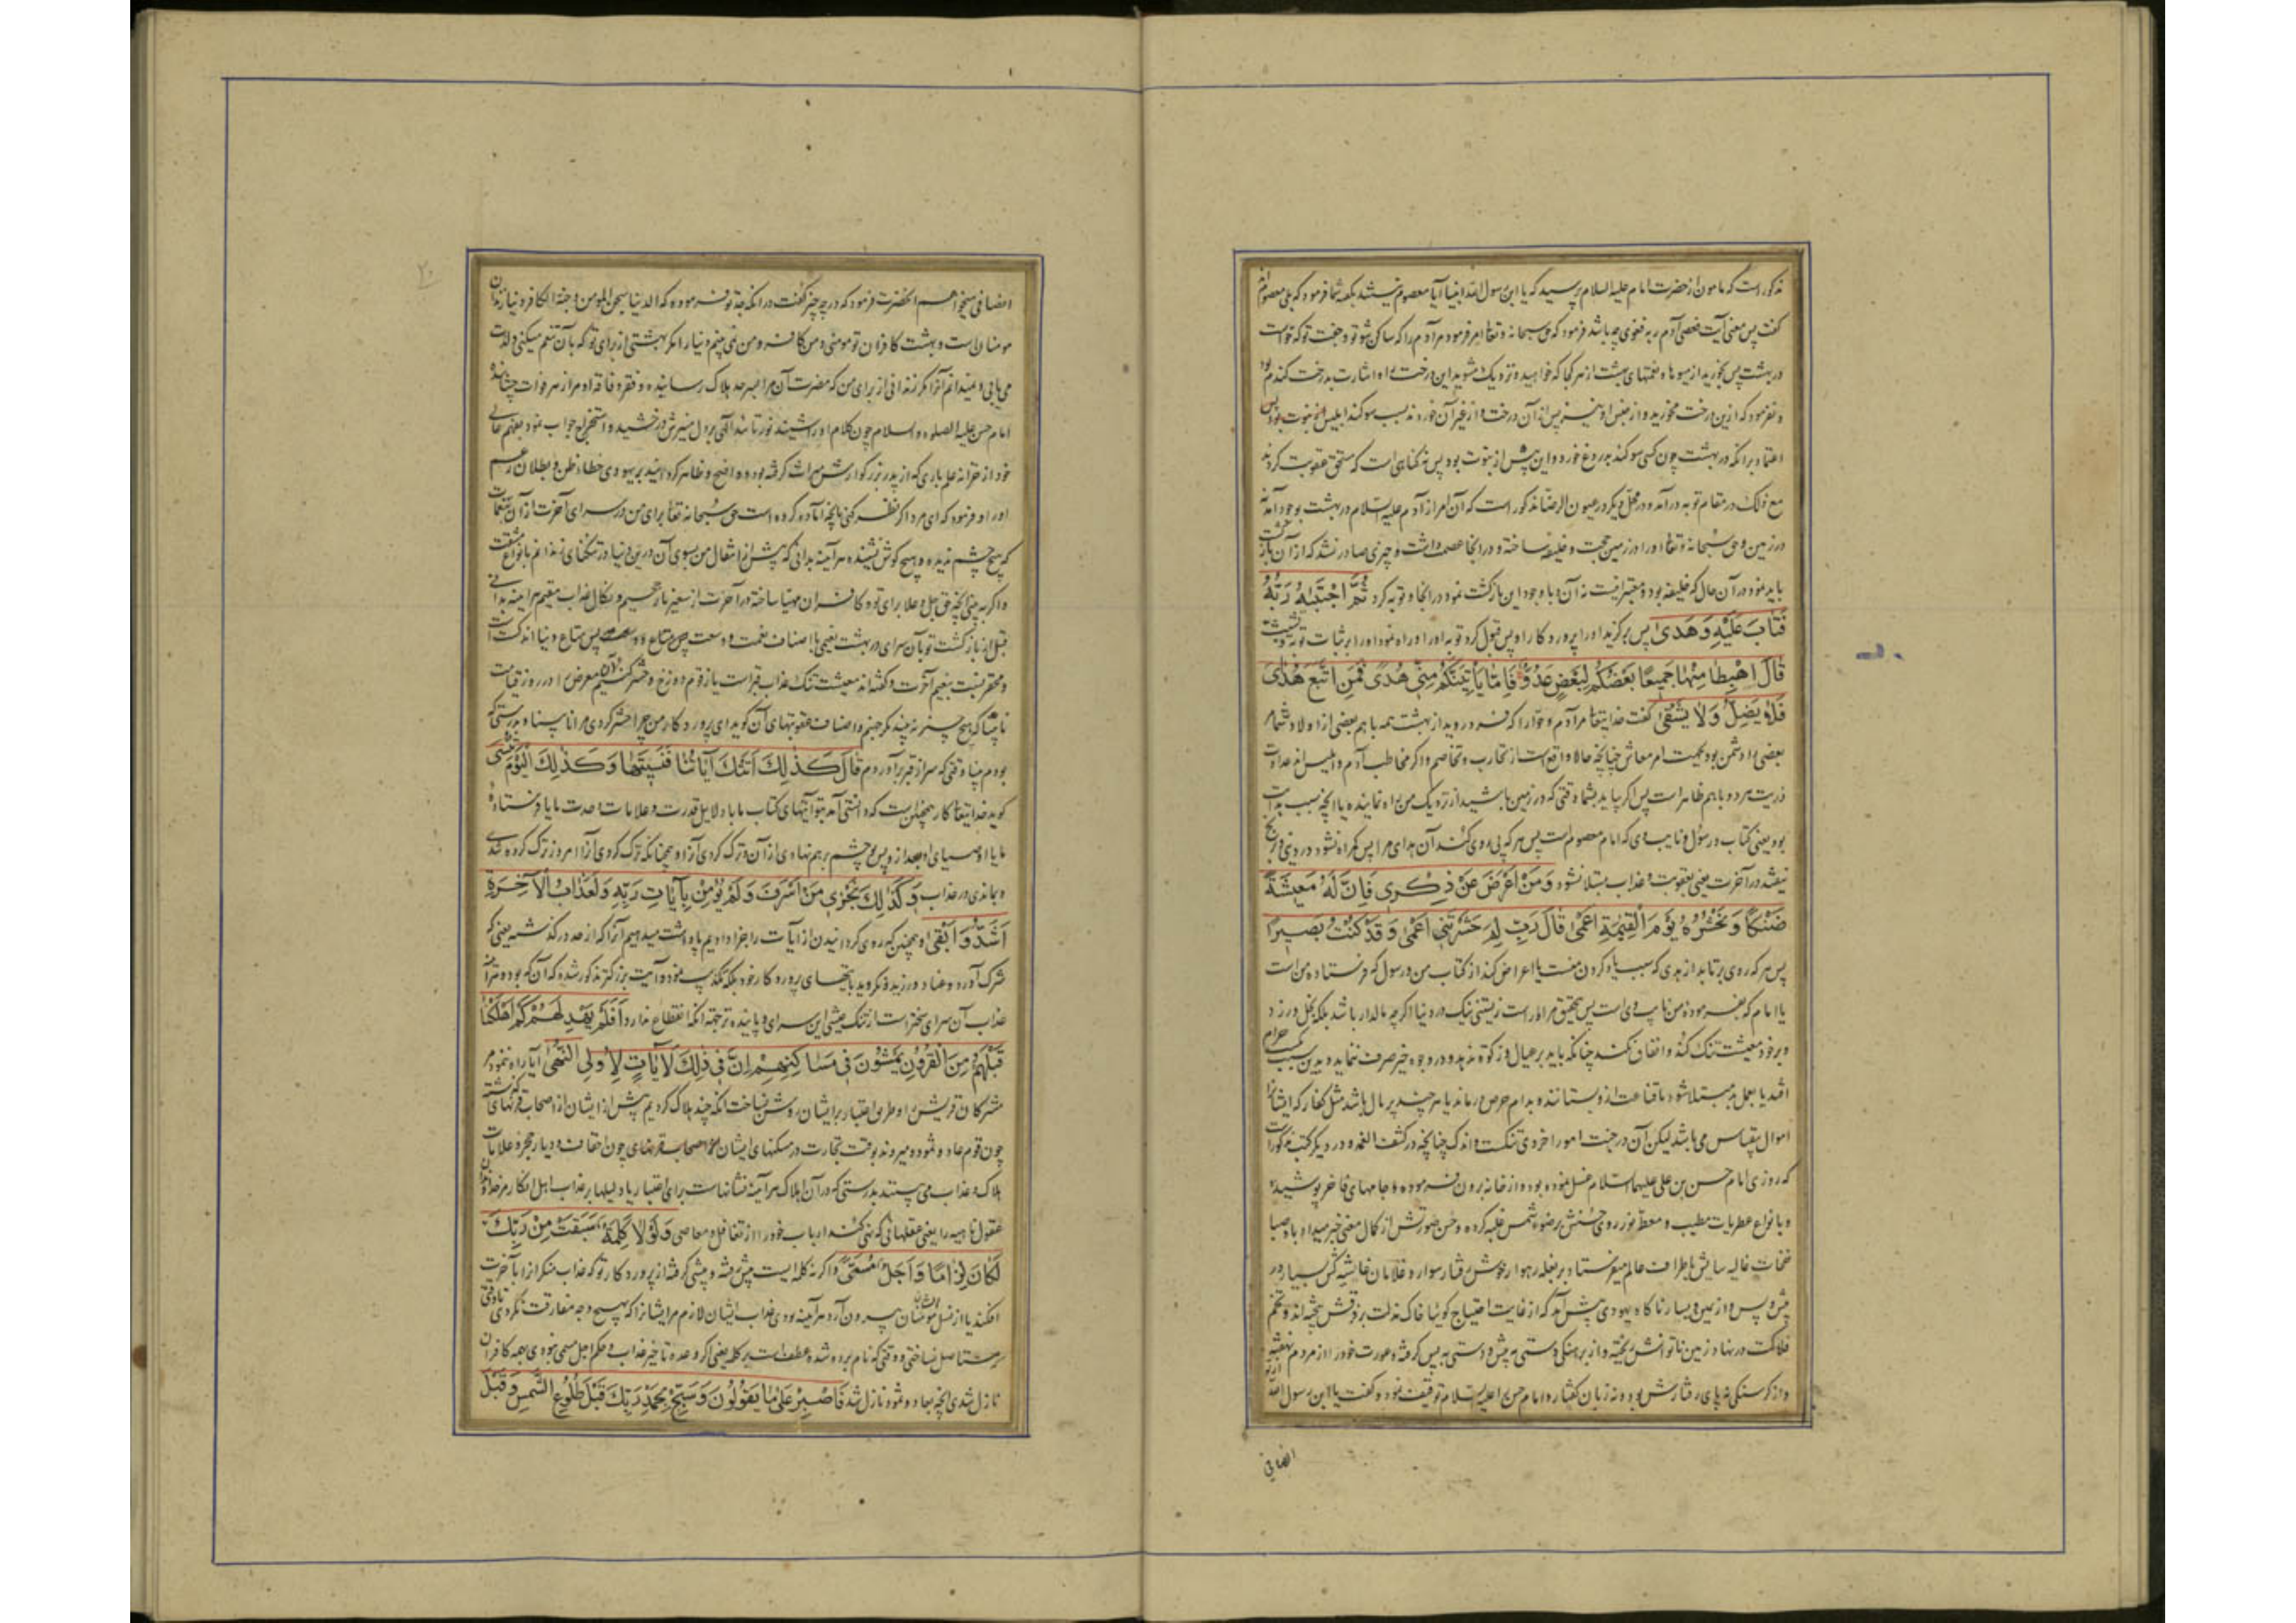 مذکور است که مامون از حضرت امام علیه السلام پرسید که یا ابن رسول الله انبیا آیا معصوم نیستند بگفته شما فرمود که بلی معصوم‌اند
گفت پس معنی آیت فعصی آدم ربه فغوی چه باشد فرمود که حق سبحانه و تعالی امر فرمود مر آدم را که ساکن شو تو و جفت تو که حواست
در بهشت پس بخورید از میوها و نعمتهای بهشت از هر کجا که خواهید و نزدیک مشوید این درخت را و اشارت بدرخت گندم بود
و نفرمود که ازین درخت مخورید و از جنس او نیز پس از آن درخت و از غیر آن خوردند بسبب سوگند ابلیس
اعتماد بر آنکه در بهشت چون کسی سوگند بدروغ خورد و این پیش از نبوت بود پس نه گناهی است که مستحق عقوبت گردند
مع ذلک در مقام توبه درآمد و در محل دیگر در عیون الرضا مذکور است که آن امر از آدم علیه السلام در بهشت بوجود آمد نه
در زمین و حق سبحانه و تعالی او را در زمین حجت و خلیفه ساخته و در آنجا عصمت داشت و چیزی صادر نشد که از آن باز گشت
باید نمود در آن حال که خلیفه بود و معتبر نیست نه آن و با وجود این بازگشت نمود در آنجا و توبه کرد ثُمَّ اجْتَبَیهُ رَبُّهُ
فَتَابَ عَلَیْهِ وَهَدَی پس برگزید او را پروردگار او پس قبول کرد توبه او را و راه نمود او را بر ثبات توبه
قَالَ اهْبِطَا مِنْهَا جَمِیعًا بَعْضُکُمْ لِبَعْضٍ عَدُوٌّ فَإِمَّا یَأْتِیَنَّکُمْ مِنِّی هُدًی فَمَنِ اتَّبَعَ هُدَایَ
فَلَا یَضِلُّ وَلَا یَشْقَی گفت خدایتعالی مر آدم و حوا را که فرو روید از بهشت همه با هم بعضی از اولاد شما مر
بعضی را دشمن بود بجهت امر معاش چنانچه حالا واقع است از تحارب و تخاصم و اگر مخاطب آدم و ابلیس‌اند عداوت
ذریت هر دو با هم ظاهر است پس اگر بیاید بشما وقتی که در زمین باشید از نزدیک من راه نماینده یا آنچه سبب هدایت
بود یعنی کتاب و رسول و نایب وی که امام معصوم است پس هر که پی روی کند آن هدای مرا پس گمراه نشود در دین و رنج
نیفتد در آخرت یعنی بعقوبت و عذاب مبتلا نشود وَمَنْ أَعْرَضَ عَنْ ذِکْرِی فَإِنَّ لَهُ مَعِیشَةً
ضَنْکًا وَنَحْشُرُهُ یَوْمَ الْقِیمَةِ أَعْمَی قَالَ رَبِّ لِمَ حَشَرْتَنِی أَعْمَی وَقَدْ کُنْتُ بَصِیرًا
پس هر که روی برتابد از هدی که سبب یاد کردن منست یا اعراض کند از کتاب من و رسول که فرستاده من است
یا امام که بفرموده من نایب وی است پس بتحقیق مر او راست زیستنی تنگ در دنیا اگر چه مالدار باشد بلکه بخل ورزد
و بر خود معیشت تنگ کند و انفاق نکند چنانکه باید بر عیال و زکوة ندهد و در وجوه خیر صرف ننماید و بدین سبب بکسب حرام
افتد یا بعمل بد مبتلا شود یا قناعت از و بستانند و بدام حرص درماند یا هر چند پر مال باشد مثل کفار که ایشانرا
اموال بیقیاس می باشد لیکن آن در جنب امور اخروی تنگست و اندک چنانچه در کشف الغمه و در دیگر کتب مذکور است
که روزی امام حسن بن علی علیهما السلام غسل نموده بود و از خانه بیرون فرموده و جامهای فاخر پوشیده
و بانواع عطریات مطیب و معطر نور روی حسنش بر ضوء شمس غلبه کرده و حسن صورتش از کمال معنی خبر میداد و باد صبا
نفحات غالیه سایش باطراف عالم میفرستاد بر بغله رهوار خوش رفتار سوار و غلامان غاشیه کش بسیار در
پیش و پس و از یمین و یسار ناگاه یهودی پیش آمد که از غایت احتیاج گویا خاک مذلت بر فرقش بیخته‌اند و تخم
فلاکت در نهاد زمین ناتوانش ریخته و از برهنگی دستی به پیش و دستی به پس گرفته و عورت خود را از مردم نهفته
و از گرسنگی نه پای رفتارش بود و نه زبان گفتار و امام حسن را علیه السلام توقیف نمود و گفت یا ابن رسول الله
انصافی
انصافی میخواهم آنحضرت فرمود که در چه چیز گفت در آنکه جد تو فرموده که الدنیا سجن المومن و جنة الکافر دنیا زندان
مومنان است و بهشت کافران تو مومنی و من کافر و من نمی بینم دنیا را مگر بهشتی از برای تو که بآن تنعم میکنی و لذت
می یابی و نمیدانم آنرا مگر زندانی از برای من که مضرت آن مرا بسرحد هلاک رسانیده و فقر و فاقه او مرا زهر فوات چشانیده
امام حسن علیه الصلوه والسلام چون کلام او را شنید نور تایید الهی بر دل منیرش درخشید و استخراج جواب نمود بفهم عالی
خود از خزانه علم باری که از پدر بزرگوارش میراث گرفته بود و واضح و ظاهر گردانید بر یهودی خطاء ظن و بطلان زعم
او را و فرمود که ای مرد اگر نظر کنی بآنچه آماده کرده است حق سبحانه تعالی برای من در سرای آخرت از آن تنعمات
که هیچ چشم ندیده و هیچ گوش نشنیده هر آینه بدانی که پیش از انتقال من بسوی آن درین دنیا در تنگنای زندانم بانواع مشقت
و اگر به بینی آنچه حق جل و علا برای تو و کافران مهیا ساخته در آخرت از سعیر نار جحیم و نکال عذاب مقیم هر آینه بدانی
قبل از بازگشت تو بآن سرای در بهشت نعیمی با اصناف نعمت و وسعت پس متاع دنیا اندکست
و محقر نسبت بنعیم آخرت و گفته‌اند معیشت تنگ عذاب قبر است یا زقوم دوزخ و حشر کنیم آن معرض را در روز قیامت
نابینا که هیچ چیز نه بیند مگر جهنم و اصناف عقوبتهای آن گوید ای پروردگار من چرا حشر کردی مرا نابینا و بدرستی که
بودم بینا وقتی که سر از قبر برآوردم قَالَ کَذَلِکَ أَتَتْکَ آیَاتُنَا فَنَسِیتَهَا وَکَذَلِکَ الْیَوْمَ تُنْسَی
گوید خدایتعالی کار همچنین است که دانستی آمد بتو آیتهای کتاب ما با دلایل قدرت و علامات وحدت ما یا فرستاده
ما یا اوصیای او بعد از و پس چشم بر هم نهادی از آن و ترک کردی آنرا و همچنانکه ترک کردی آنرا امروز ترک کرده شدی
و بماندی در عذاب وَکَذَلِکَ نَجْزِی مَنْ أَسْرَفَ وَلَمْ یُؤْمِنْ بِآیَاتِ رَبِّهِ وَلَعَذَابُ الْآخِرَةِ
أَشَدُّ وَأَبْقَی و همچنین که روی گردانیدن از آیات را جزا دادیم پاداشت میدهیم آنرا که از حد درگذشت یعنی که
شرک آورد و عناد ورزید و نگروید بآیتهای پروردگار خود بلکه تکذیب نمود و آیت بزرگتر مذکور شده که آن که بود و هر آینه
عذاب آن سرای سختر است از تنگ عیشی این سرای و پاینده‌تر بجهت آنکه انقطاع ندارد أَفَلَمْ یَهْدِ لَهُمْ کَمْ أَهْلَکْنَا
قَبْلَهُمْ مِنَ الْقُرُونِ یَمْشُونَ فِی مَسَاکِنِهِمْ إِنَّ فِی ذَلِکَ لَآیَاتٍ لِأُولِی النُّهَی آیا راه ننمود مر
مشرکان قریش را و طریق اعتبار بر ایشان روشن نساخت آنکه چند هلاک کردیم پیش از ایشان از اصحاب قرنهای گذشته
چون قوم عاد و ثمود و میروند بوقت تجارت در مسکنهای ایشان چون احقاف و دیار حجر و علامات
هلاک و عذاب می بینند بدرستی که در آن اهلاک هر آینه نشانهاست برای اعتبار یا دلیلها بر عذاب اهل انکار مر خداوندان
عقول ناهیه را یعنی عقلهائی که نهی کنند ارباب خود را از تغافل و معاصی وَلَوْلَا کَلِمَةٌ سَبَقَتْ مِنْ رَبِّکَ
لَکَانَ لِزَامًا وَأَجَلٌ مُسَمًّی و اگر نه کلمه ایست پیش رفته و پیشی گرفته از پروردگار تو که عذاب منکرانرا بآخرت
افکند یا از نسل ایشان مومنان بیرون آرد هر آینه بودی عذاب ایشان لازم مر ایشانرا که بهیچ وجه مفارقت نکردی تا وقتی
مستاصل نساختی و وقتی که نام برده شده عطف است بر کلمه یعنی اگر وعده تاخیر عذاب و حکم اجل مسمی نبودی بهمه کافران
نازل شدی آنچه بعاد و ثمود نازل شد فَاصْبِرْ عَلَی مَا یَقُولُونَ وَسَبِّحْ بِحَمْدِ رَبِّکَ قَبْلَ طُلُوعِ الشَّمْسِ وَقَبْلَ